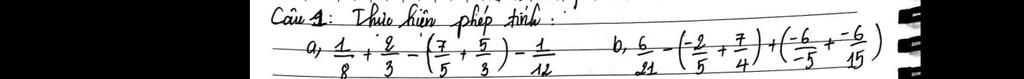 Câu 1: Thực hiện phép tính:
a, 1/8 + 2/3 - (7/5 + 5/3) - 1/12 b, 6/21 - (-2/5 + 7/4) + (-6/-5 + -6/15)